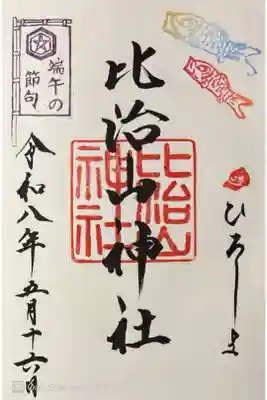 ひろしま
比治山神社
比治山
神社
端午の
節句
令和八年五月十六日